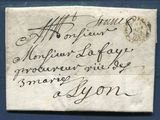 A Monsieur
Monsieur Lafaye
procureur rüe de
3 maries
a Lyon